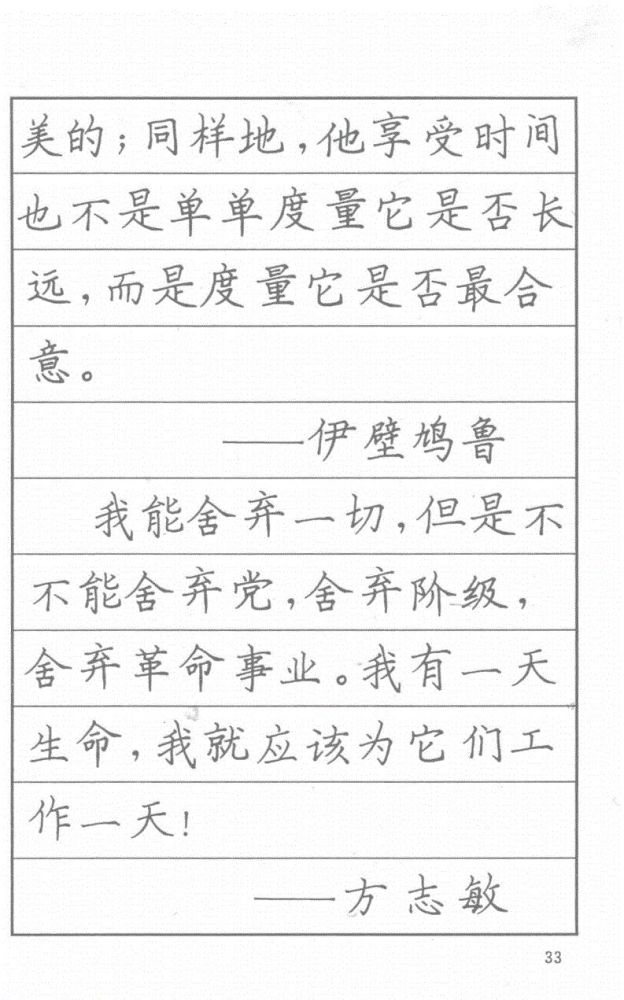 美的；同样地，他享受时间
也不是单单度量它是否长
远，而是度量它是否最合
意。
——伊壁鸠鲁
我能舍弃一切，但是不
不能舍弃党，舍弃阶级，
舍弃革命事业。我有一天
生命，我就应该为它们工
作一天！
——方志敏
33